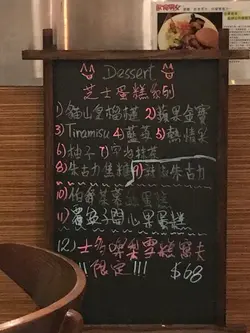 Dessert
芝士蛋糕系列
1) 貓山皇榴槤 2) 蘋果金寶
3) Tiramisu 4) 藍莓 5) 熱情果
6) 柚子 7)
8) 朱古力焦糖 9) 朱古力
10) 伯爵茶
11) 開心果蛋糕
12) 士多啤梨雪糕窩夫
!! 限定 !!! $68